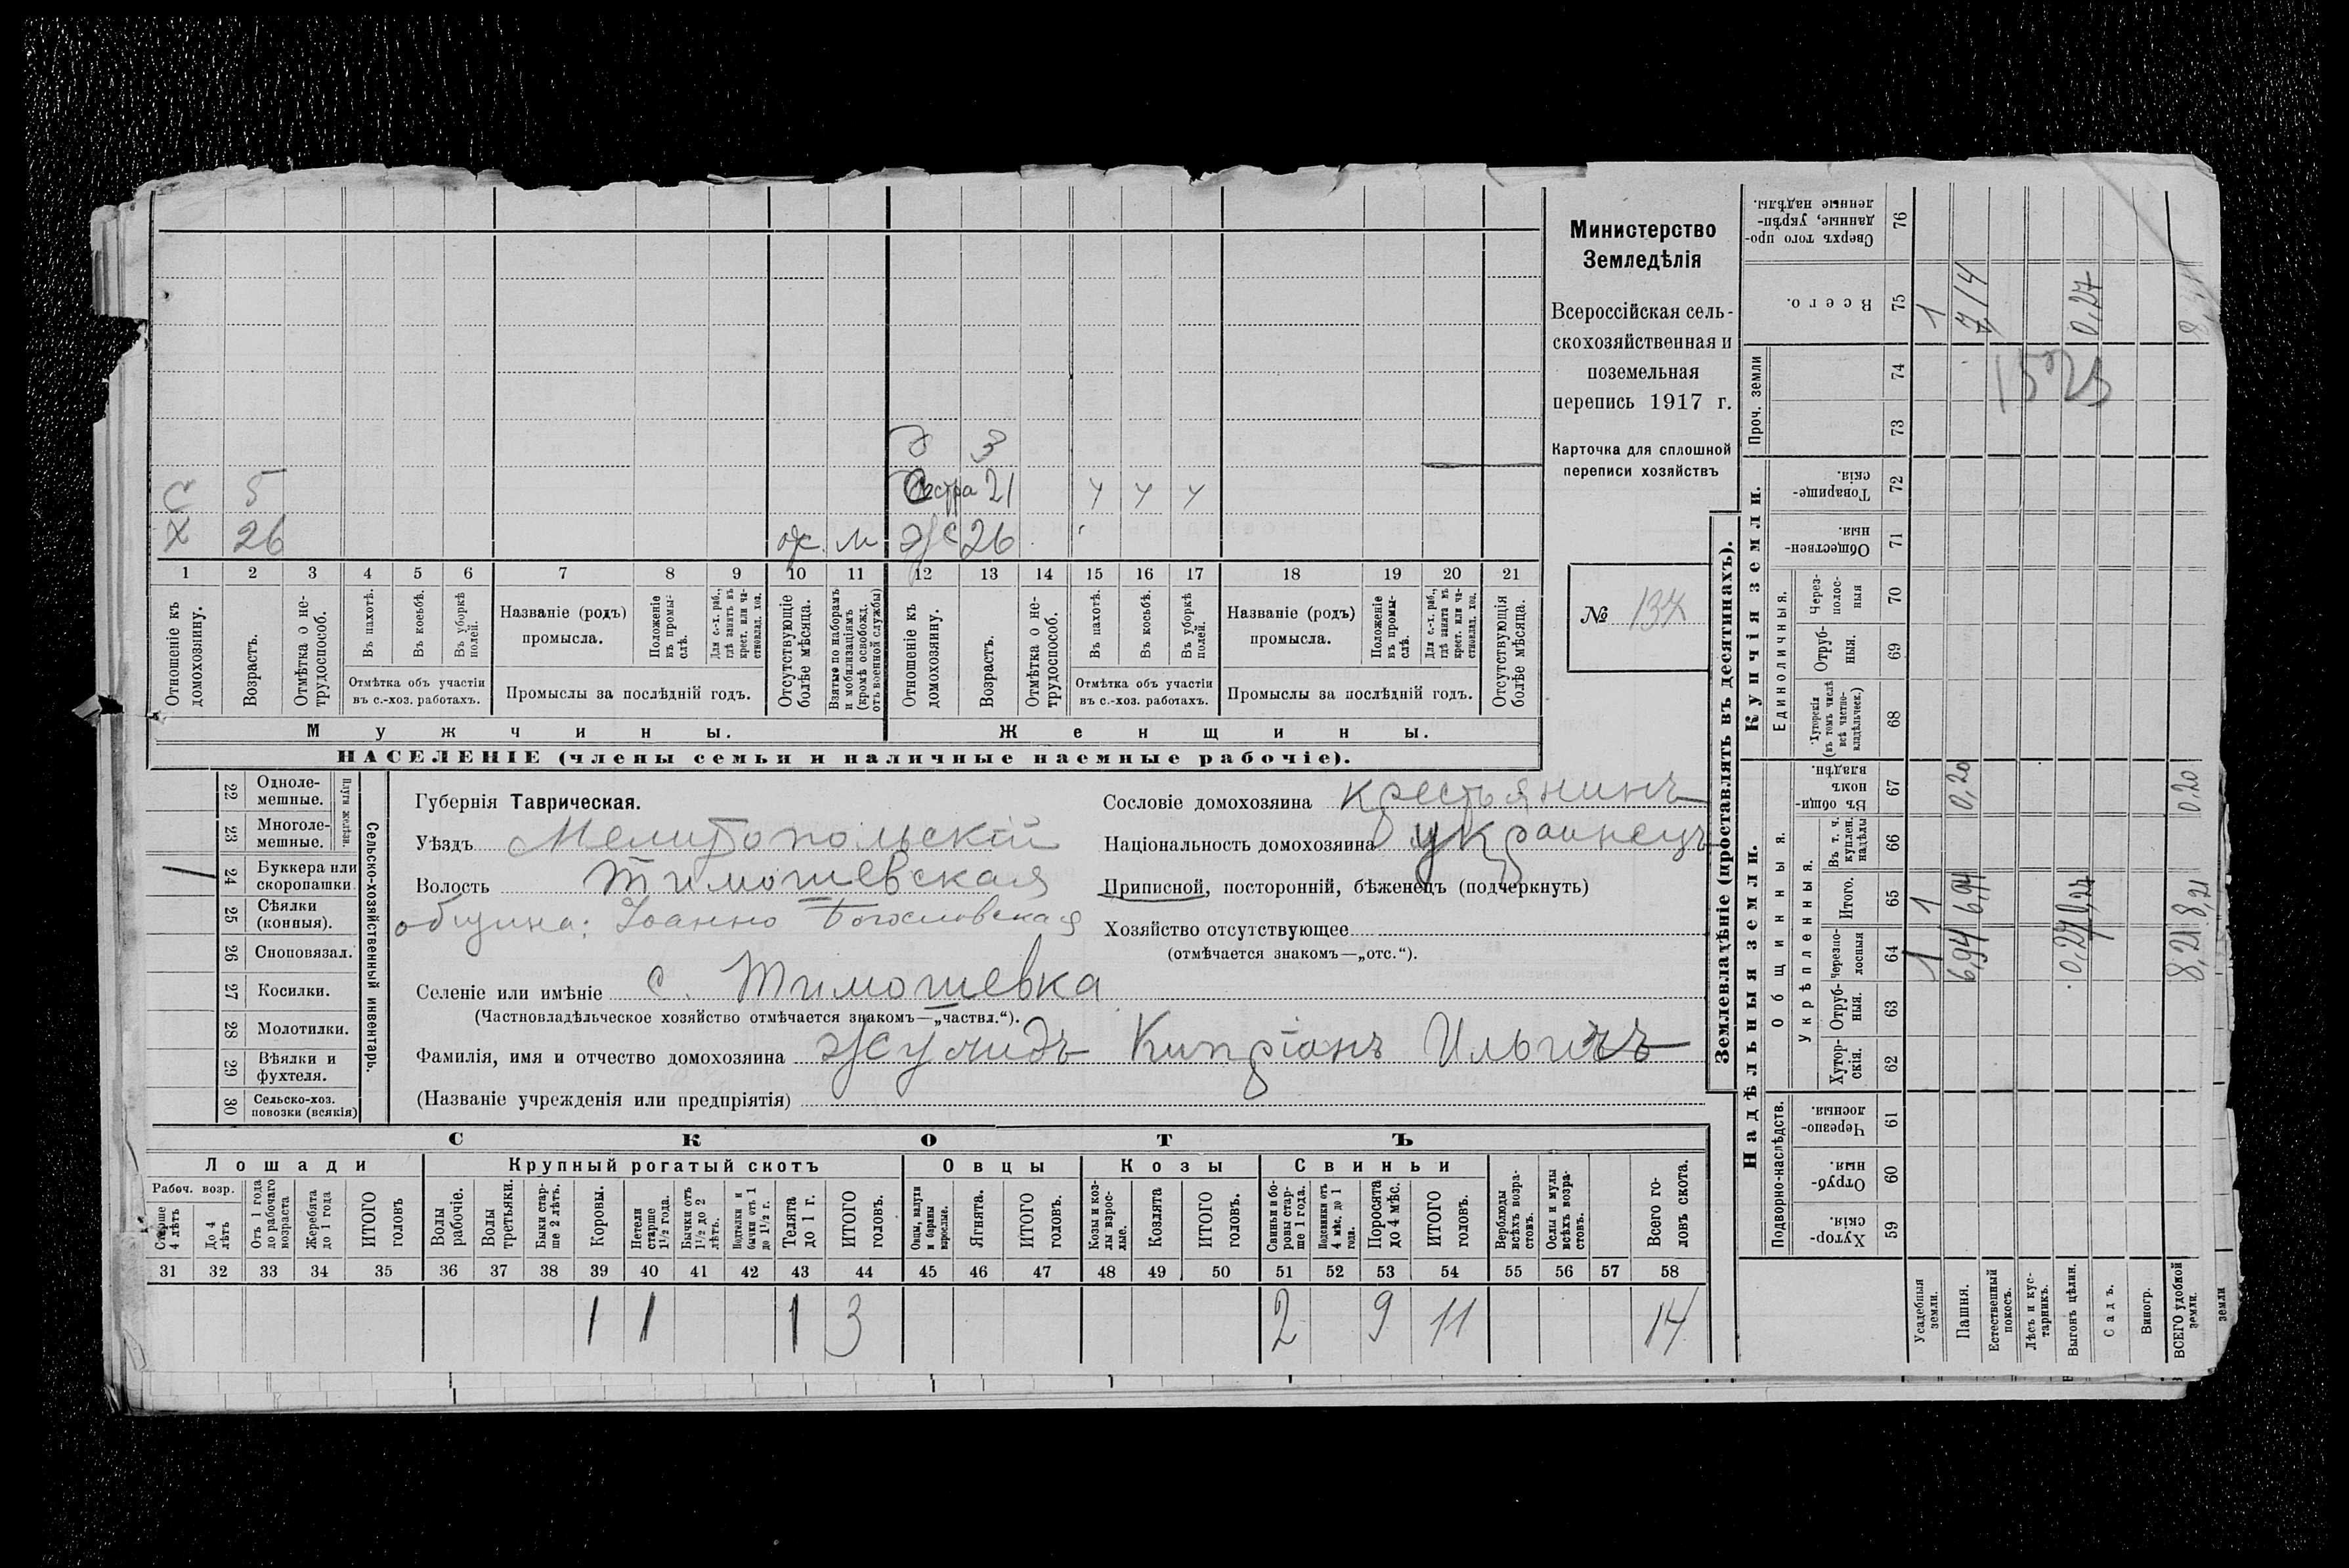 Министерство
Земледѣлія
Всероссійская сель-
скохозяйственная и
поземельная
перепись 1917 г.
Карточка для сплошной
переписи хозяйствъ
№ 134
д 3
С 5 Сестра 21 ч ч ч
Х 26 ж 26
1 2 3 4 5 6 7 8 9 10 11 12 13 14 15 16 17 18 19 20 21
Отношеніе къ домохозяину.
Возрастъ.
Отмѣтка о не-трудоспособ.
Въ пахотѣ.
Въ косьбѣ.
Въ уборкѣ полей.
Отмѣтка объ участіи
въ с.-хоз. работахъ.
Названіе (родъ)
промысла.
Положеніе въ промы-слѣ.
Для с.-х. раб., гдѣ занятъ въ крест. или ча-стновлад. хоз.
Промыслы за послѣдній годъ.
Отсутствующіе болѣе мѣсяца.
Взятые по наборамъ и мобилизаціямъ (кромѣ освобожд. отъ военной службы)
Отношеніе къ домохозяину.
Возрастъ.
Отмѣтка о не-трудоспособ.
Въ пахотѣ.
Въ косьбѣ.
Въ уборкѣ полей.
Отмѣтка объ участіи
въ с.-хоз. работахъ.
Названіе (родъ)
промысла.
Положеніе въ промы-слѣ.
Для с.-х. раб., гдѣ занята въ крест. или ча-стновлад. хоз.
Промыслы за послѣдній годъ.
Отсутствующія болѣе мѣсяца.
Мужчины. Женщины.
НАСЕЛЕНІЕ (члены семьи и наличные наемные рабочіе).
22 Одноле-мешные.
23 Многоле-мешные.
Плуги желѣзн.
24 Буккера или скоропашки
25 Сѣялки (конныя).
26 Сноповязал.
27 Косилки.
28 Молотилки.
29 Вѣялки и фухтеля.
30 Сельско-хоз. повозки (всякія)
Сельско-хозяйственный инвентарь.
Губернія Таврическая.
Уѣздъ Мелитопольскій
Волость Тимошевская
община: Іоанно Богословская
Селеніе или имѣніе с. Тимошевка
(Частновладѣльческое хозяйство отмѣчается знакомъ—„частвл.“).
Фамилія, имя и отчество домохозяина Кипріанъ Ильичъ
(Названіе учрежденія или предпріятія)
Сословіе домохозяина крестьянинъ
Національность домохозяина украинецъ
Приписной, посторонній, бѣженецъ (подчеркнуть)
Хозяйство отсутствующее
(отмѣчается знакомъ—„отс.“).
СКОТЪ
Лошади Крупный рогатый скотъ Овцы Козы Свиньи
Рабоч. возр.
Старше 4 лѣтъ
До 4 лѣтъ
Отъ 1 года до рабочаго возраста
Жеребята до 1 года
ИТОГО головъ
Волы рабочіе.
Волы третьяки.
Быки стар-ше 2 лѣтъ.
Коровы.
Нетели старше 1½ года.
Бычки отъ 1½ до 2 лѣтъ.
Подтелки и бычки отъ 1 до 1½ г.
Телята до 1 г.
ИТОГО головъ.
Овцы, валухи и бараны взрослые.
Ягнята.
ИТОГО головъ.
Козы и коз-лы взрос-лые.
Козлята
ИТОГО головъ.
Свиньи и бо-ровы стар-ше 1 года.
Подсвинки отъ 4 мѣс. до 1 года.
Поросята до 4 мѣс.
ИТОГО головъ.
Верблюды всѣхъ возра-стовъ.
Ослы и мулы всѣхъ возра-стовъ.
Всего го-ловъ скота.
31 32 33 34 35 36 37 38 39 40 41 42 43 44 45 46 47 48 49 50 51 52 53 54 55 56 57 58
1 1 1 3 2 9 11 14
Землевладѣніе (проставлять въ десятинахъ).
Надѣльныя земли. Купчія земли. Проч. земли
Подворно-наслѣдств. Общинныя. Единоличныя.
Укрѣпленныя.
Хутор-скія. 59
Отруб-ныя. 60
Черезпо-лосныя. 61
Хутор-скія. 62
Отруб-ныя. 63
Черезпо-лосныя 64
Итого. 65
Въ т. ч. куплен. надѣлы 66
Въ общи-номъ владѣн. 67
Хуторскія (въ томъ числѣ всѣ частно-владѣльческ.) 68
Отруб-ныя. 69
Через-полос-ныя 70
Обществен-ныя. 71
Товарище-скія. 72
73
74
Всего. 75
Сверхъ того про-данные, укрѣп-ленные надѣлы. 76
Усадебныя земли. 1 1 1
Пашня. 6,94 6,94 0,20 7,14
Естественный покосъ.
Лѣсъ и кус-тарникъ.
Выгонъ цѣлин. 0,27 0,27 0,27
Садъ.
Виногр.
ВСЕГО удобной земли. 8,21 8,21 0,20
земли